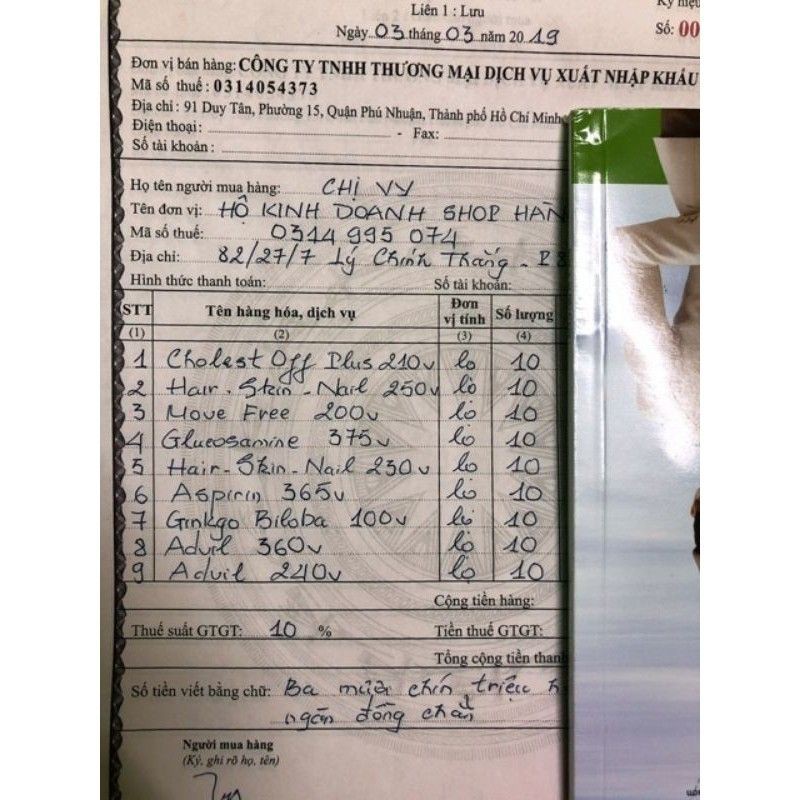 Liên 1 : Lưu
Ký hiệu
Ngày 03 tháng 03 năm 2019
Số: 00
Đơn vị bán hàng: CÔNG TY TNHH THƯƠNG MẠI DỊCH VỤ XUẤT NHẬP KHẨU
Mã số thuế : 0314054373
Địa chỉ : 91 Duy Tân, Phường 15, Quận Phú Nhuận, Thành phố Hồ Chí Minh
Điện thoại : - Fax:
Số tài khoản :
Họ tên người mua hàng: CHỊ VY
Tên đơn vị: HỘ KINH DOANH SHOP HÀN
Mã số thuế: 0314 995 074
Địa chỉ: 82/27/7 Lý Chính Thắng - P 8
Hình thức thanh toán: Số tài khoản:
STT Tên hàng hóa, dịch vụ Đơn vị tính Số lượng
(1) (2) (3) (4)
1 Cholest Off Plus 210v lọ 10
2 Hair - Skin - Nail 250v lọ 10
3 Move Free 200v lọ 10
4 Glucosamine 375v lọ 10
5 Hair - Skin - Nail 230v lọ 10
6 Aspirin 365v lọ 10
7 Ginkgo Biloba 100v lọ 10
8 Advil 360v lọ 10
9 Advil 240v lọ 10
Cộng tiền hàng:
Thuế suất GTGT: 10 % Tiền thuế GTGT:
Tổng cộng tiền thanh
Số tiền viết bằng chữ: Ba mươi chín triệu
ngàn đồng chẵn
Người mua hàng
(Ký, ghi rõ họ, tên)